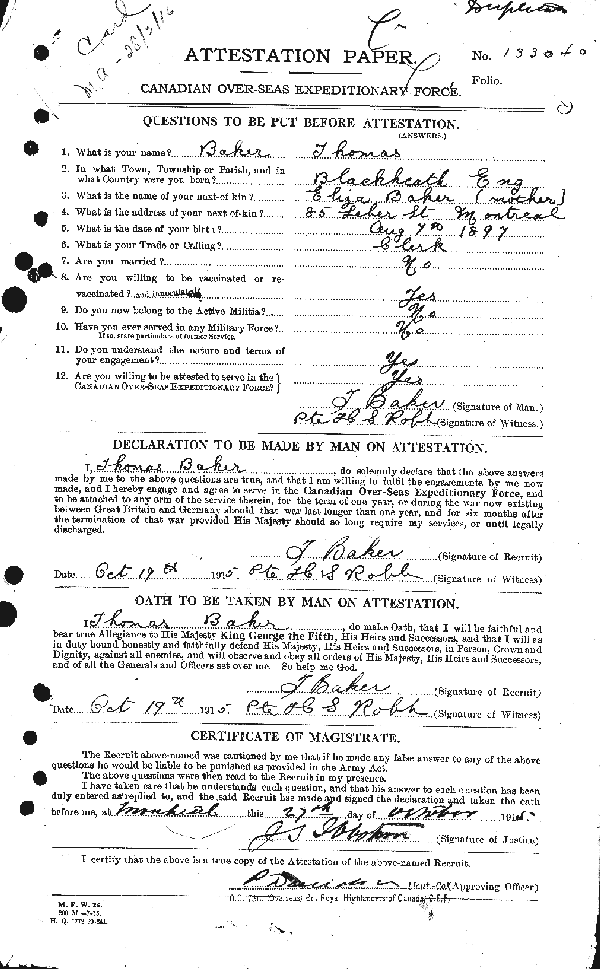 Card
M.A - 28/2/16
ATTESTATION PAPER. No. 133040
Folio.
CANADIAN OVER-SEAS EXPEDITIONARY FORCE.
QUESTIONS TO BE PUT BEFORE ATTESTATION.
(ANSWERS.)
1. What is your name? Baker Thomas
2. In what Town, Township or Parish, and in
what Country were you born? Blackheath Eng
3. What is the name of your next-of-kin? Eliza Baker (mother)
4. What is the address of your next-of-kin? 85 St Montreal
5. What is the date of your birth? Aug 7th 1897
6. What is your Trade or Calling? Clerk
7. Are you married? No
8. Are you willing to be vaccinated or re-
vaccinated? Yes
9. Do you now belong to the Active Militia? No
10. Have you ever served in any Military Force? No
If so, state particulars of former Service.
11. Do you understand the nature and terms of
your engagement? Yes
12. Are you willing to be attested to serve in the Yes
CANADIAN OVER-SEAS EXPEDITIONARY FORCE?
T Baker (Signature of Man.)
Pte H S Robb (Signature of Witness.)
DECLARATION TO BE MADE BY MAN ON ATTESTATION.
I, Thomas Baker, do solemnly declare that the above answers
made by me to the above questions are true, and that I am willing to fulfil the engagements by me now
made, and I hereby engage and agree to serve in the Canadian Over-Seas Expeditionary Force, and
to be attached to any arm of the service therein, for the term of one year, or during the war now existing
between Great Britain and Germany should that war last longer than one year, and for six months after
the termination of that war provided His Majesty should so long require my services, or until legally
discharged.
T Baker (Signature of Recruit)
Date Oct 19th 1915 Pte H S Robb (Signature of Witness)
OATH TO BE TAKEN BY MAN ON ATTESTATION.
I Thomas Baker, do make Oath, that I will be faithful and
bear true Allegiance to His Majesty King George the Fifth, His Heirs and Successors, and that I will as
in duty bound honestly and faithfully defend His Majesty, His Heirs and Successors, in Person, Crown and
Dignity, against all enemies, and will observe and obey all orders of His Majesty, His Heirs and Successors,
and of all the Generals and Officers set over me. So help me God.
T Baker (Signature of Recruit)
Date Oct 19th 1915 Pte H S Robb (Signature of Witness)
CERTIFICATE OF MAGISTRATE.
The Recruit above-named was cautioned by me that if he made any false answer to any of the above
questions he would be liable to be punished as provided in the Army Act.
The above questions were then read to the Recruit in my presence.
I have taken care that he understands each question, and that his answer to each question has been
duly entered as replied to, and the said Recruit has made and signed the declaration and taken the oath
before me, at Montreal this 27th day of October 1915.
(Signature of Justice)
I certify that the above is a true copy of the Attestation of the above-named Recruit.
Lieut-Col (Approving Officer)
O.C. 73rd Overseas Bn. Royal Highlanders of Canada C.E.F.
M. F. W. 23.
200 M.
H. Q. 1772-39-241.